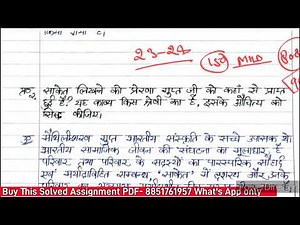 23-24
1st MHD
प्र०2. साकेत लिखने की प्रेरणा गुप्त जी को कहाँ से प्राप्त
हुई है? यह काव्य किस श्रेणी का है, इसके औचित्य को
सिद्ध कीजिए।
उ० मैथिलीशरण गुप्त भारतीय संस्कृति के सच्चे उपासक थे।
भारतीय सामाजिक जीवन की संघटना का मूलाधार है
परिवार तथा परिवार के सदस्यों का पारस्परिक सौहार्द
एवं मर्यादित सम्बन्ध, 'साकेत' में दशरथ और उनके
Buy This Solved Assignment PDF- 8851761957 What's App only